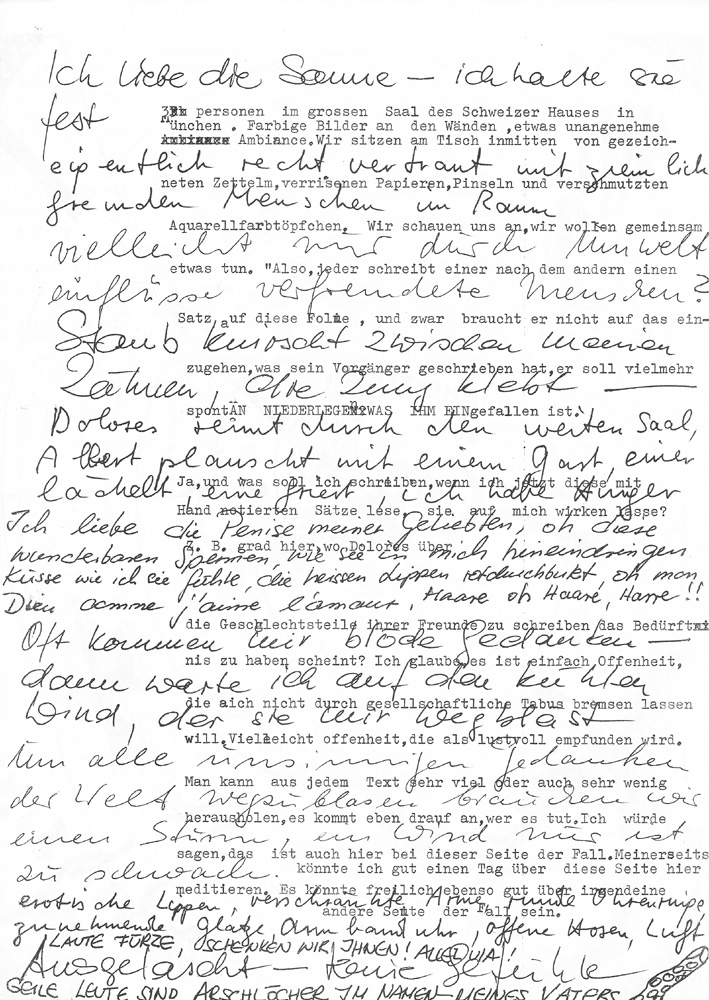 Ich liebe die Sonne — ich halte sie
fest
3 personen im grossen Saal des Schweizer Hauses in
ünchen . Farbige Bilder an den Wänden ,etwas unangenehme
Ambiance.Wir sitzen am Tisch inmitten von gezeich-
eigentlich recht vertraut mit ziemlich
neten Zettelm,verrisenen Papieren,Pinseln und verschmutzten
fremden Menschen im Raum
Aquarellfarbtöpfchen. Wir schauen uns an,wir wollen gemeinsam
vielleicht nur durch Umwelt
etwas tun. "Also,jeder schreibt einer nach dem andern einen
einflüsse verfremdete Menschen?
Satz auf diese Folie , und zwar braucht er nicht auf das ein-
Staub knirscht zwischen meinen
zugehen,was sein Vorgänger geschrieben hat,er soll vielmehr
Zähnen, die Zung klebt —
spontÄN NIEDERLEGEN,WAS IHM EINgefallen ist."
Dolores rennt durch den weiten Saal,
Albert plauscht mit einem Gast, einer
Ja,und was soll ich schreiben,wenn ich jetzt diese mit
lächelt, eine friert, ich habe Hunger
Hand notierten Sätze lese, sie auf mich wirken lasse?
Ich liebe die Penise meiner Geliebten, oh diese
Z. B. grad hier,wo Dolores über
wunderbaren Spermien, wie sie in mich hineindringen
Küsse wie ich sie fühle, die heissen Lippen oh mon
Dieu comme j'aime l'amour, Haare oh Haare, Harre!!
die Geschlechtsteile ihrer Freunde zu schreiben das Bedürft
Oft kommen mir blöde Gedanken —
nis zu haben scheint? Ich glaube,es ist einfach Offenheit,
dann warte ich auf den kühlen
die aich nicht durch gesellschaftliche Tabus bremsen lassen
Wind, der sie mir wegbläst
will.Vielleicht offenheit,die als lustvoll empfunden wird.
Um alle unsinnigen Gedanken
Man kann aus jedem Text sehr viel oder auch sehr wenig
der Welt wegzublasen brauchen wir
herausholen,es kommt eben drauf an,wer es tut.Ich würde
einen Sturm, ein Wind nur ist
sagen,das ist auch hier bei dieser Seite der Fall.Meinerseits
zu schwach.
könnte ich gut einen Tag über diese Seite hier
meditieren. Es könnte freilich ebenso gut über irgendeine
erotische Lippen, verschränkte Arme, runde Ohrenringe,
andere Seite der Fall sein.
zunehmende Glatze, Armbanduhr, offene Hosen, Luft
LAUTE FÜRZE, SCHENKEN WIR IHNEN! ALLELUIA!
Ausgelascht — keine Gefühle
GEILE LEUTE SIND ARSCHLÖCHER IM NAMEN MEINES VATERS